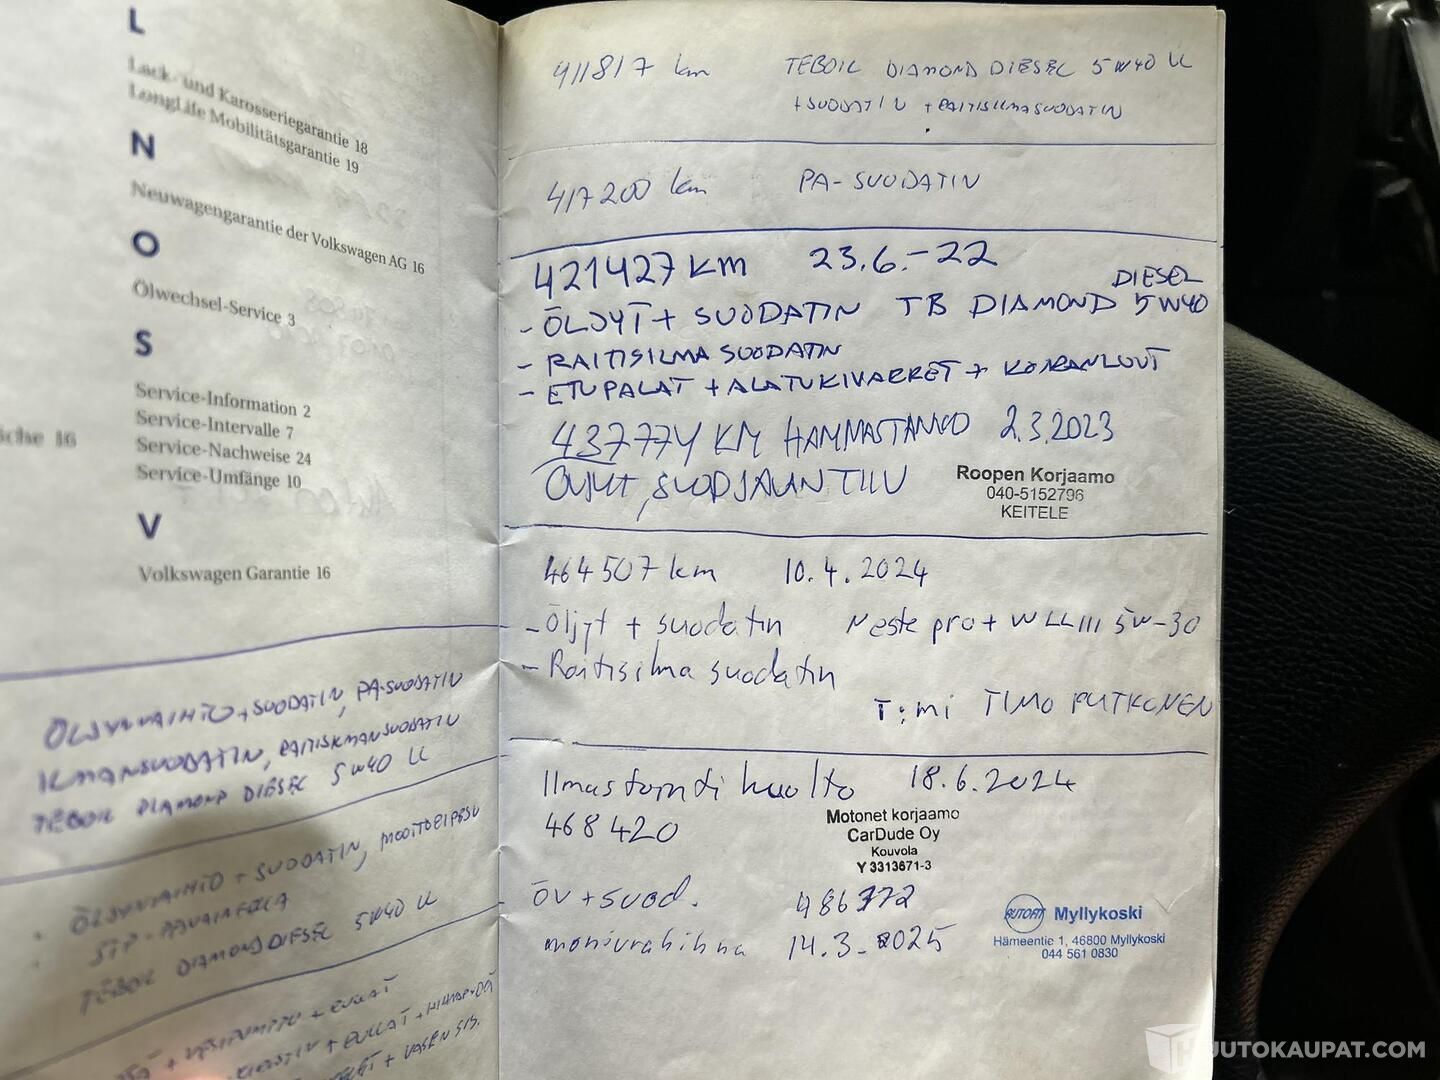 L
Lack- und Karosseriegarantie 18
LongLife Mobilitätsgarantie 19
N
Neuwagengarantie der Volkswagen AG 16
O
Ölwechsel-Service 3
S
Service-Information 2
Service-Intervalle 7
Service-Nachweise 24
Service-Umfänge 10
V
Volkswagen Garantie 16
16
ÖLJYNVAIHTO + SUODATIN, PA-SUODATIN
ILMANSUODATIN, RAITISILMANSUODATIN
TEBOIL DIAMOND DIESEL 5W40 LL
ÖLJYNVAIHTO + SUODATIN, MOOTTORIPESU
TEBOIL DIAMOND DIESEL 5W40 LL
411817 km TEBOIL DIAMOND DIESEL 5W40 LL
+SUODATIN + RAITISILMASUODATIN
417200 km PA-SUODATIN
421427 KM 23.6.-22
DIESEL
- ÖLJYT + SUODATIN TB DIAMOND 5W40
- RAITISILMA SUODATIN
- ETUPALAT + ALATUKIVARRET + KOIRANLUUT
437774 KM HAMMASTANKO 2.3.2023
ÖLJYT, SUOD
Roopen Korjaamo
040-5152796
KEITELE
464507 km 10.4.2024
- Öljyt + suodatin Neste pro+ W LLIII 5W-30
- Raitisilma suodatin
T:mi TIMO PUTKONEN
Ilmastointi huolto 18.6.2024
468420
Motonet korjaamo
CarDude Oy
Kouvola
Y 3313671-3
ÖV + suod. 486372
moniurahihna 14.3.2025
AUTOFIT Myllykoski
Hämeentie 1, 46800 Myllykoski
044 561 0830
UTOKAUPAT.COM